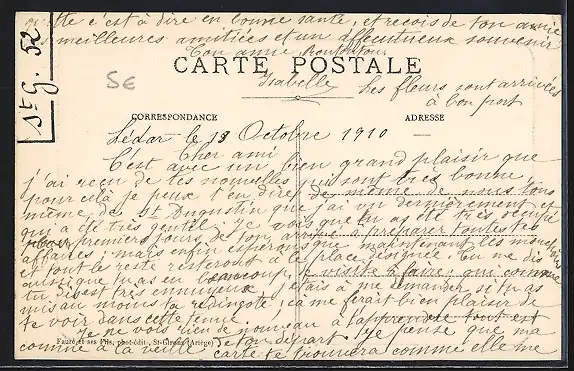 quitte c'est à dire en bonne santé, et reçois de ton amie
les meilleures amitiées et un affectueux souvenir
Ton amie
Isabelle
CARTE POSTALE
St G. 52
5€
Les fleurs sont arrivées
à bon port
CORRESPONDANCE
ADRESSE
Lédar le 18 Octobre 1910
Cher ami
C'est avec un bien grand plaisir que
j'ai reçu de tes nouvelles qui sont très bonne,
pour cela je peux t'en dire de même de nous tous
même de St Augustin que j'ai vu dernièrement et
qui a été très gentil. Je vois que tu as été très occupé
premiers jours de ton à préparer toutes tes
affaires; mais enfin espérons que maintenant les
et tout le reste resteront à la place désignée. Tu me dis
aussi que tu as eu beaucoup de visite à faire, qui comme
tu dis est très ennuyeux, j'étais à me demander si tu as
mis au moins ta redingote, ça me ferait bien plaisir de
te voir dans cette tenue.
Je ne vois rien de nouveau à t'apprendre tout est
comme à la veille de ton départ, je pense que ma
carte te trouvera comme elle me
Fauré et ses Fils, phot-édit., St-Girons (Ariège)